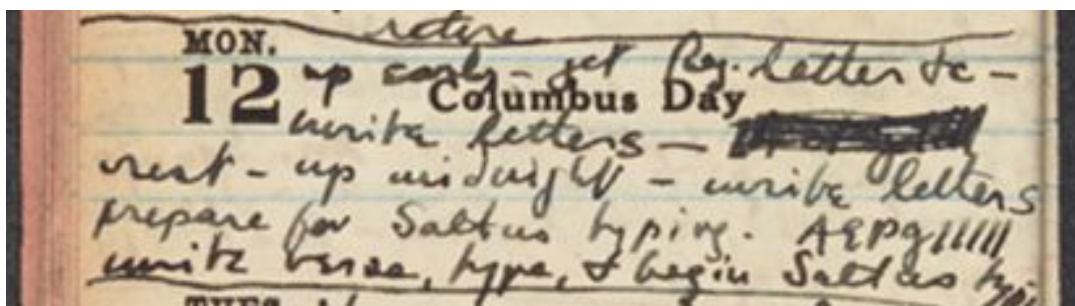 retire
MON.
12 up early - get Reg. letter &c -
Columbus Day
write letters -
rest - up midnight - write letters
prepare for Saltus typing.
write verse, type, & begin Saltus typ
TUES